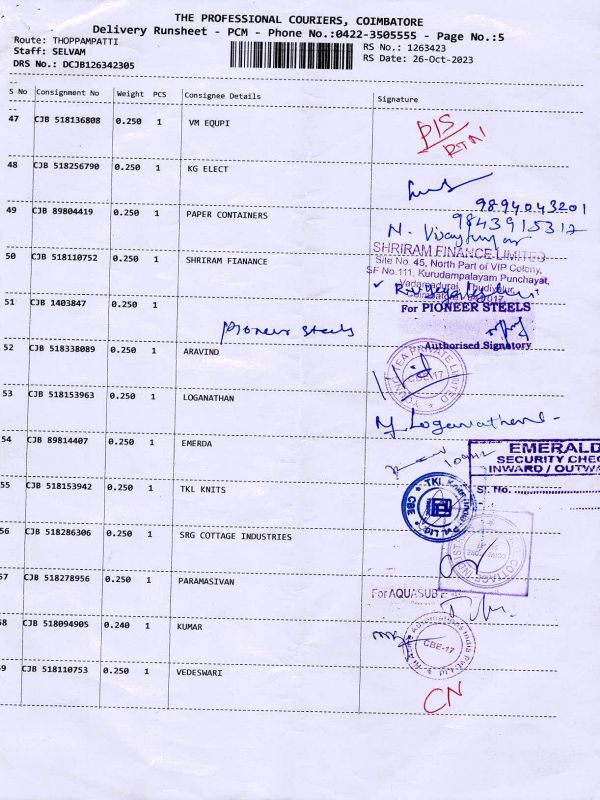 THE PROFESSIONAL COURIERS, COIMBATORE
Delivery Runsheet - PCM - Phone No.:0422-3505555 - Page No.:5
Route: THOPPAMPATTI
RS No.: 1263423
Staff: SELVAM
RS Date: 26-Oct-2023
DRS No.: DCJB126342305
S No Consignment No Weight PCS Consignee Details Signature
47 CJB 518136808 0.250 1 VM EQUPI
P/S
48 CJB 518256790 0.250 1 KG ELECT
9894043201
49 CJB 89804419 0.250 1 PAPER CONTAINERS
9843915312
SHRIRAM FINANCE LIMITED
50 CJB 518110752 0.250 1 SHRIRAM FIANANCE
Site No. 45, North Part of VIP Colony,
SF No.111, Kurudampalayam Punchayat,
Vadamadurai, Thudiyalur,
51 CJB 1403847 0.250 1
For PIONEER STEELS
Pioneer Steels
Authorised Signatory
52 CJB 518338089 0.250 1 ARAVIND
TEA PRIVATE LIMITED
CBE-17
53 CJB 518153963 0.250 1 LOGANATHAN
54 CJB 89814407 0.250 1 EMERDA
EMERALD
SECURITY CHE
INWARD / OUTWA
Sl. No.
55 CJB 518153942 0.250 1 TKL KNITS
CBE
56 CJB 518286306 0.250 1 SRG COTTAGE INDUSTRIES
57 CJB 518278956 0.250 1 PARAMASIVAN
For AQUASUB
58 CJB 518094905 0.240 1 KUMAR
CBE-17
59 CJB 518110753 0.250 1 VEDESWARI
CN